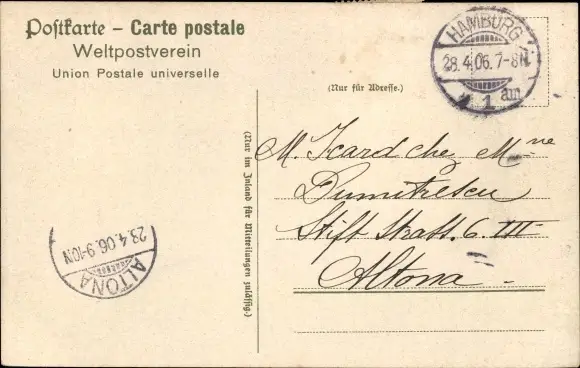 Postkarte – Carte postale
Weltpostverein
Union Postale universelle
HAMBURG
28.4.06.7-8N.
* 1 am
(Nur für Adresse.)
(Nur im Inland für Mitteilungen zulässig.)
M. Icard chez Mme
Dumitrescu
Stift Strass. 6. III
Altona -
ALTONA
23.4.06.9-10N